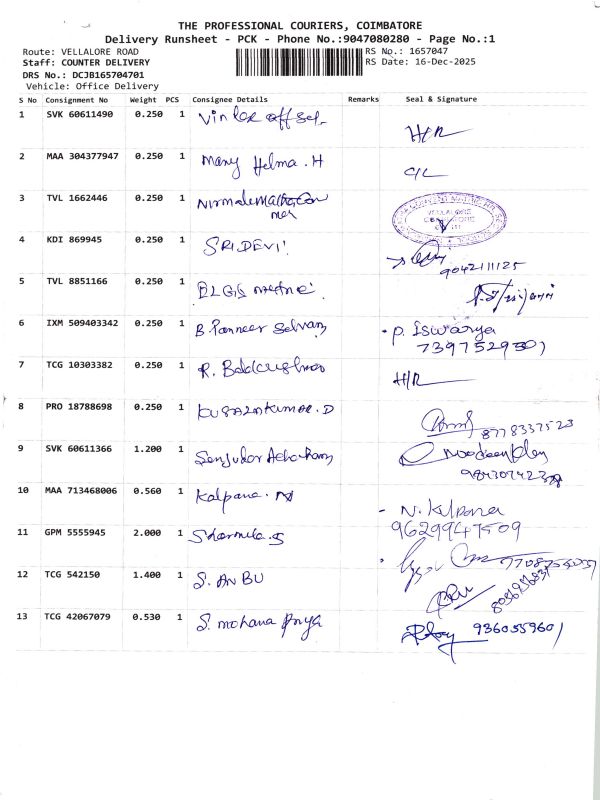 THE PROFESSIONAL COURIERS, COIMBATORE
Delivery Runsheet - PCK - Phone No.:9047080280 - Page No.:1
Route: VELLALORE ROAD RS No.: 1657047
Staff: COUNTER DELIVERY RS Date: 16-Dec-2025
DRS No.: DCJB165704701
Vehicle: Office Delivery
S No Consignment No Weight PCS Consignee Details Remarks Seal & Signature
1 SVK 60611490 0.250 1 H/R
2 MAA 304377947 0.250 1 Mary Helma . H
3 TVL 1662446 0.250 1
VELLALORE
4 KDI 869945 0.250 1 SRIDEVI
9042111125
5 TVL 8851166 0.250 1
6 IXM 509403342 0.250 1 B. Panneer Selvam P. Iswarya
7397529301
7 TCG 10303382 0.250 1 H/R
8 PRO 18788698 0.250 1 KUSALAKUMAR. D
8778337523
9 SVK 60611366 1.200 1
10 MAA 713468006 0.560 1 Kalpana. N. Kalpana
9629947509
11 GPM 5555945 2.000 1 Sharmila.S
12 TCG 542150 1.400 1 S. ANBU
13 TCG 42067079 0.530 1 S. Mohana Priya 9360559601